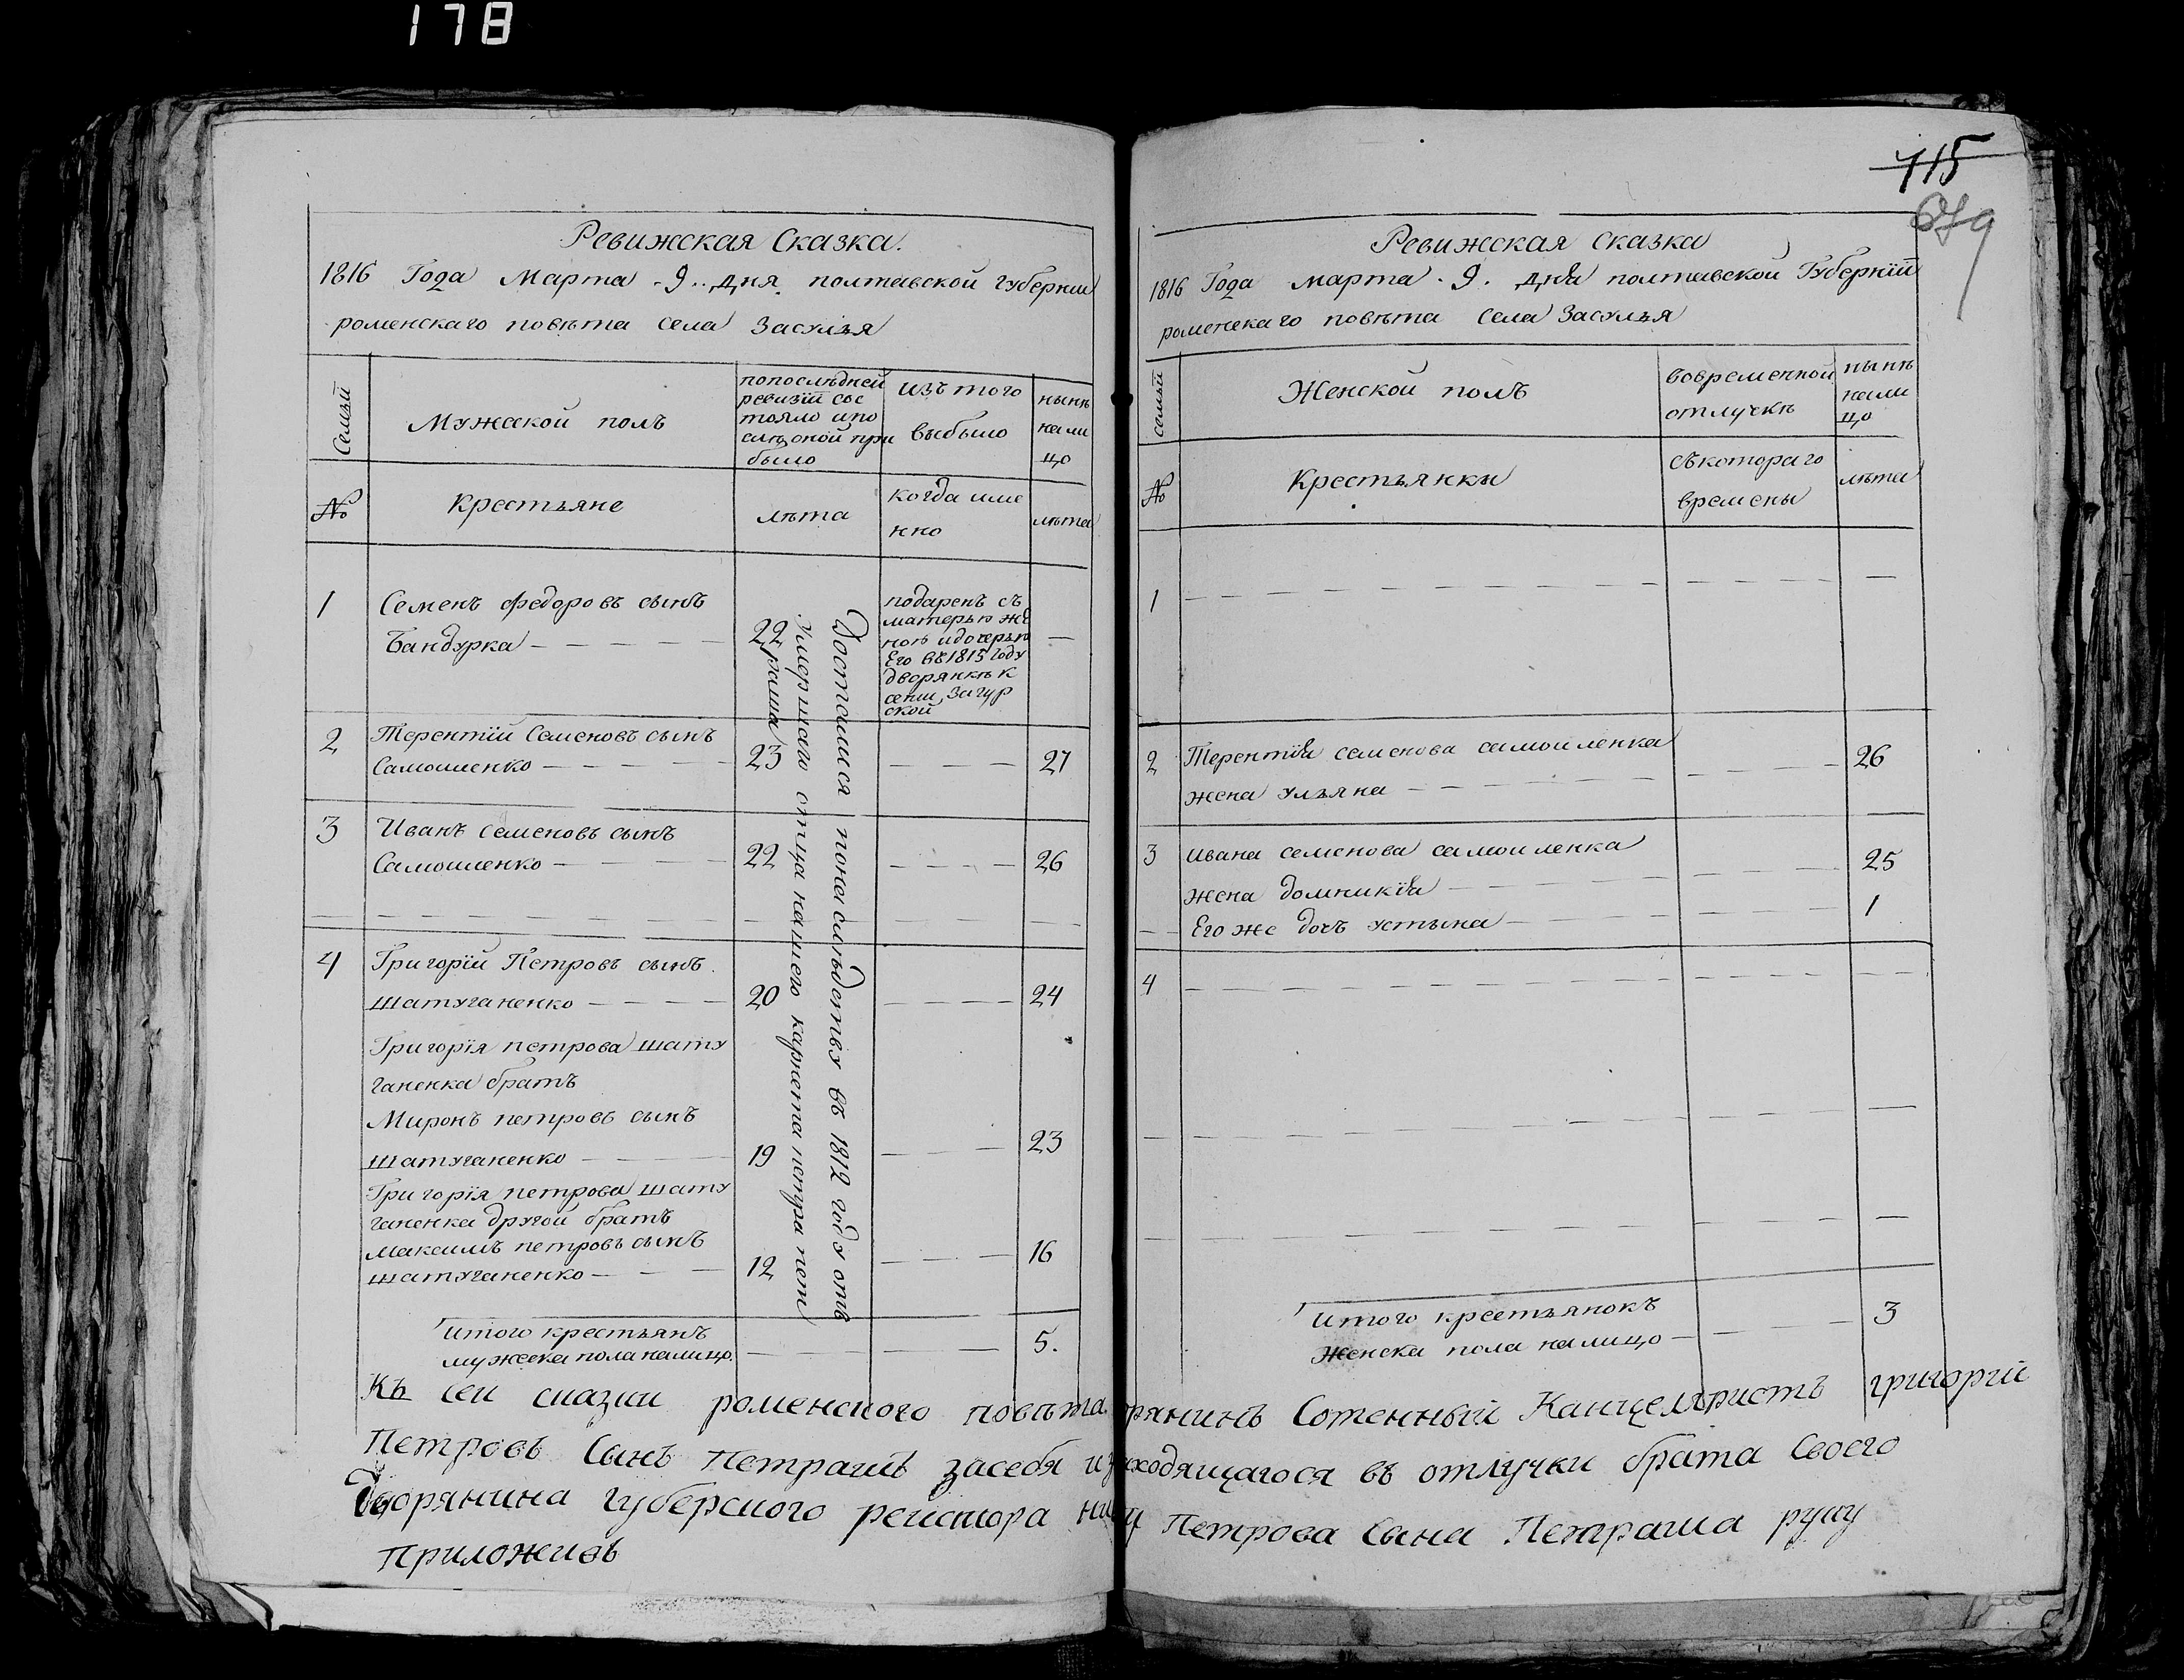 178
Ревижская Сказка.
1816 Года Марта 9. дня полтавской губернии
роменскаго повѣта села Засулья
Семьи
Мужеской полъ
попослѣдней
ревизіи сос
тояло ипо
слѣ оной при
было
изъ того
выбыло
нынѣ
нали
цо
№
Крестьяне
лѣта
когда име
нно
лѣта
1
Семенъ федоровъ сынъ
Бандурка
22
подаренъ съ
матерью же
ною идочерью
Его въ 1815 году
дворянкѣ К
сени Загур
ской
2
Терентій Семеновъ сынъ
Самоиленко
23
27
3
Иванъ семеновъ сынъ
Самоиленко
22
26
4
Григорій Петровъ сынъ
шатуганенко
20
24
Григорія петрова шату
ганенка братъ
Миронъ петровъ сынъ
шатуганенко
19
23
Григорія петрова шату
ганенка другой братъ
максимъ петровъ сынъ
шатуганенко
12
16
Достался понаслѣдству въ 1812 году отъ
Умершаго отца нашего корнета петра пет
раша
итого крестьянъ
мужеска пола налицо
5.
715
679
Ревижская сказка
1816 Года марта 9. дня полтавской Губерніи
роменскаго повѣта села Засулья
семьи
Женской полъ
вовременной
отлучкѣ
нынѣ
нали
цо
№
Крестьянки
съкотораго
времены
лѣта
1
2
Терентія семенова самоиленка
жена ульяна
26
3
ивана семенова самоиленка
жена домникія
25
Его же дочъ устына
1
4
итого крестьянокъ
женска пола налицо
3
Къ сей сказки роменского повѣта рянинъ Сотенный Канцеляристъ григорій
Петровъ Сынъ Петрашъ засебя и ходящагося въ отлучки брата своего
Дворянина губерского реистора Петрова Сына Петраша руку
приложивъ